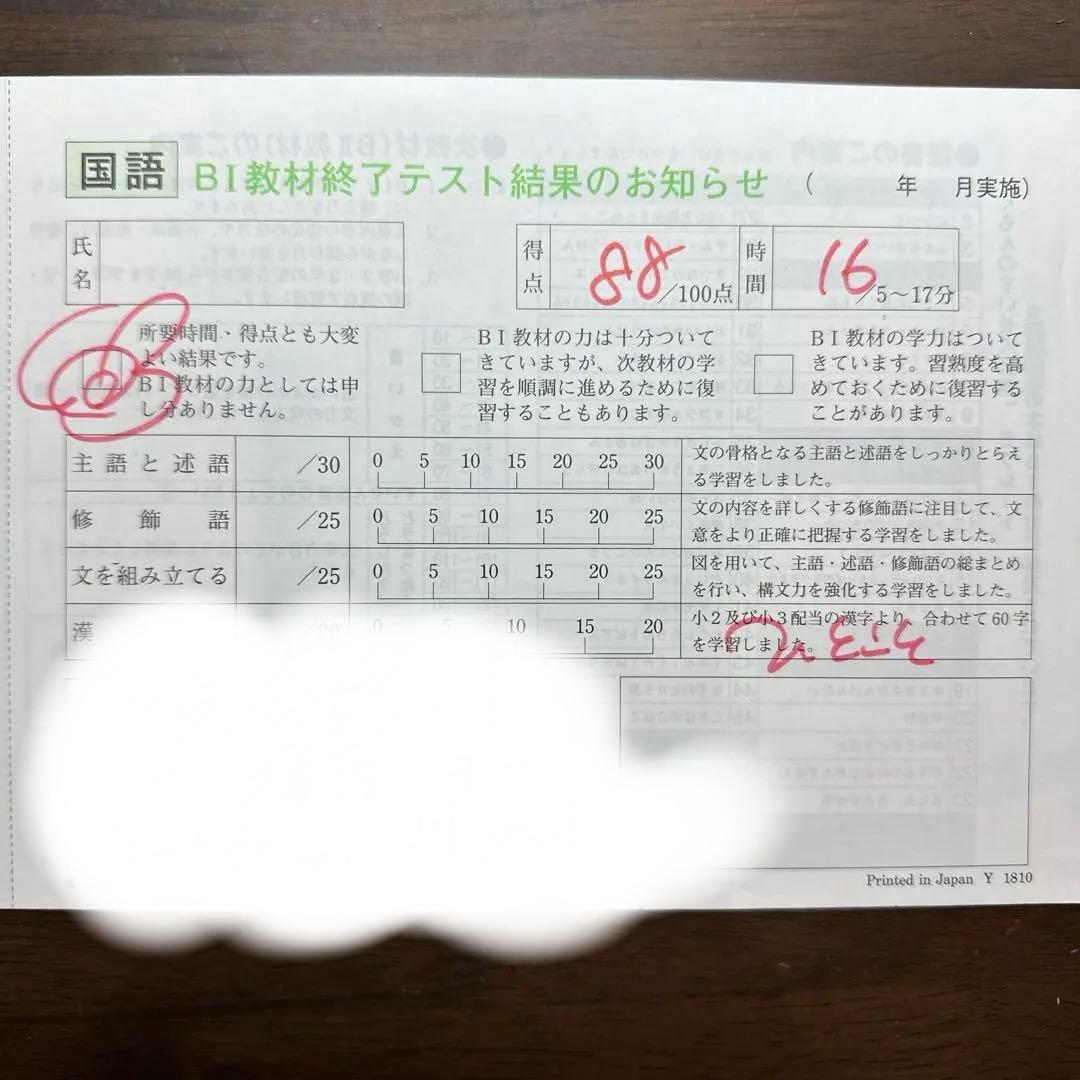 国語 BⅠ教材終了テスト結果のお知らせ ( 年 月実施)
氏名
得点 88/100点 時間 16/5～17分
所要時間・得点とも大変
よい結果です。
BⅠ教材の力としては申
し分ありません。
BⅠ教材の力は十分ついて
きていますが、次教材の学
習を順調に進めるために復
習することもあります。
BⅠ教材の学力はついて
きています。習熟度を高
めておくために復習する
ことがあります。
主語と述語 /30 0 5 10 15 20 25 30
文の骨格となる主語と述語をしっかりとらえ
る学習をしました。
修飾語 /25 0 5 10 15 20 25
文の内容を詳しくする修飾語に注目して、文
意をより正確に把握する学習をしました。
文を組み立てる /25 0 5 10 15 20 25
図を用いて、主語・述語・修飾語の総まとめ
を行い、構文力を強化する学習をしました。
漢 /20 0 10 15 20
小2及び小3配当の漢字より、合わせて60字
を学習しました。
Printed in Japan Y 1810